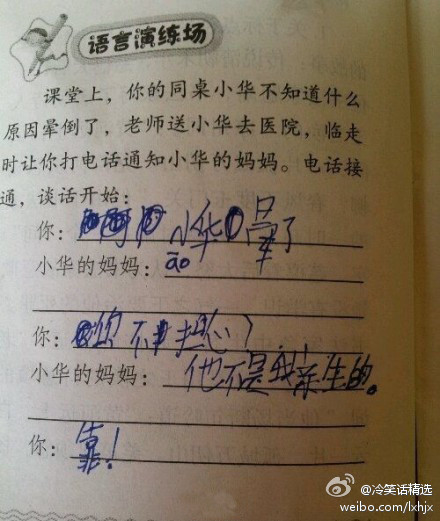 语言演练场
课堂上，你的同桌小华不知道什么
原因晕倒了，老师送小华去医院，临走
时让你打电话通知小华的妈妈。电话接
通，谈话开始：
你：小华晕了
小华的妈妈：āo
你：你不担心？
小华的妈妈：他不是我亲生的。
你：靠！
@冷笑话精选
weibo.com/lxhjx